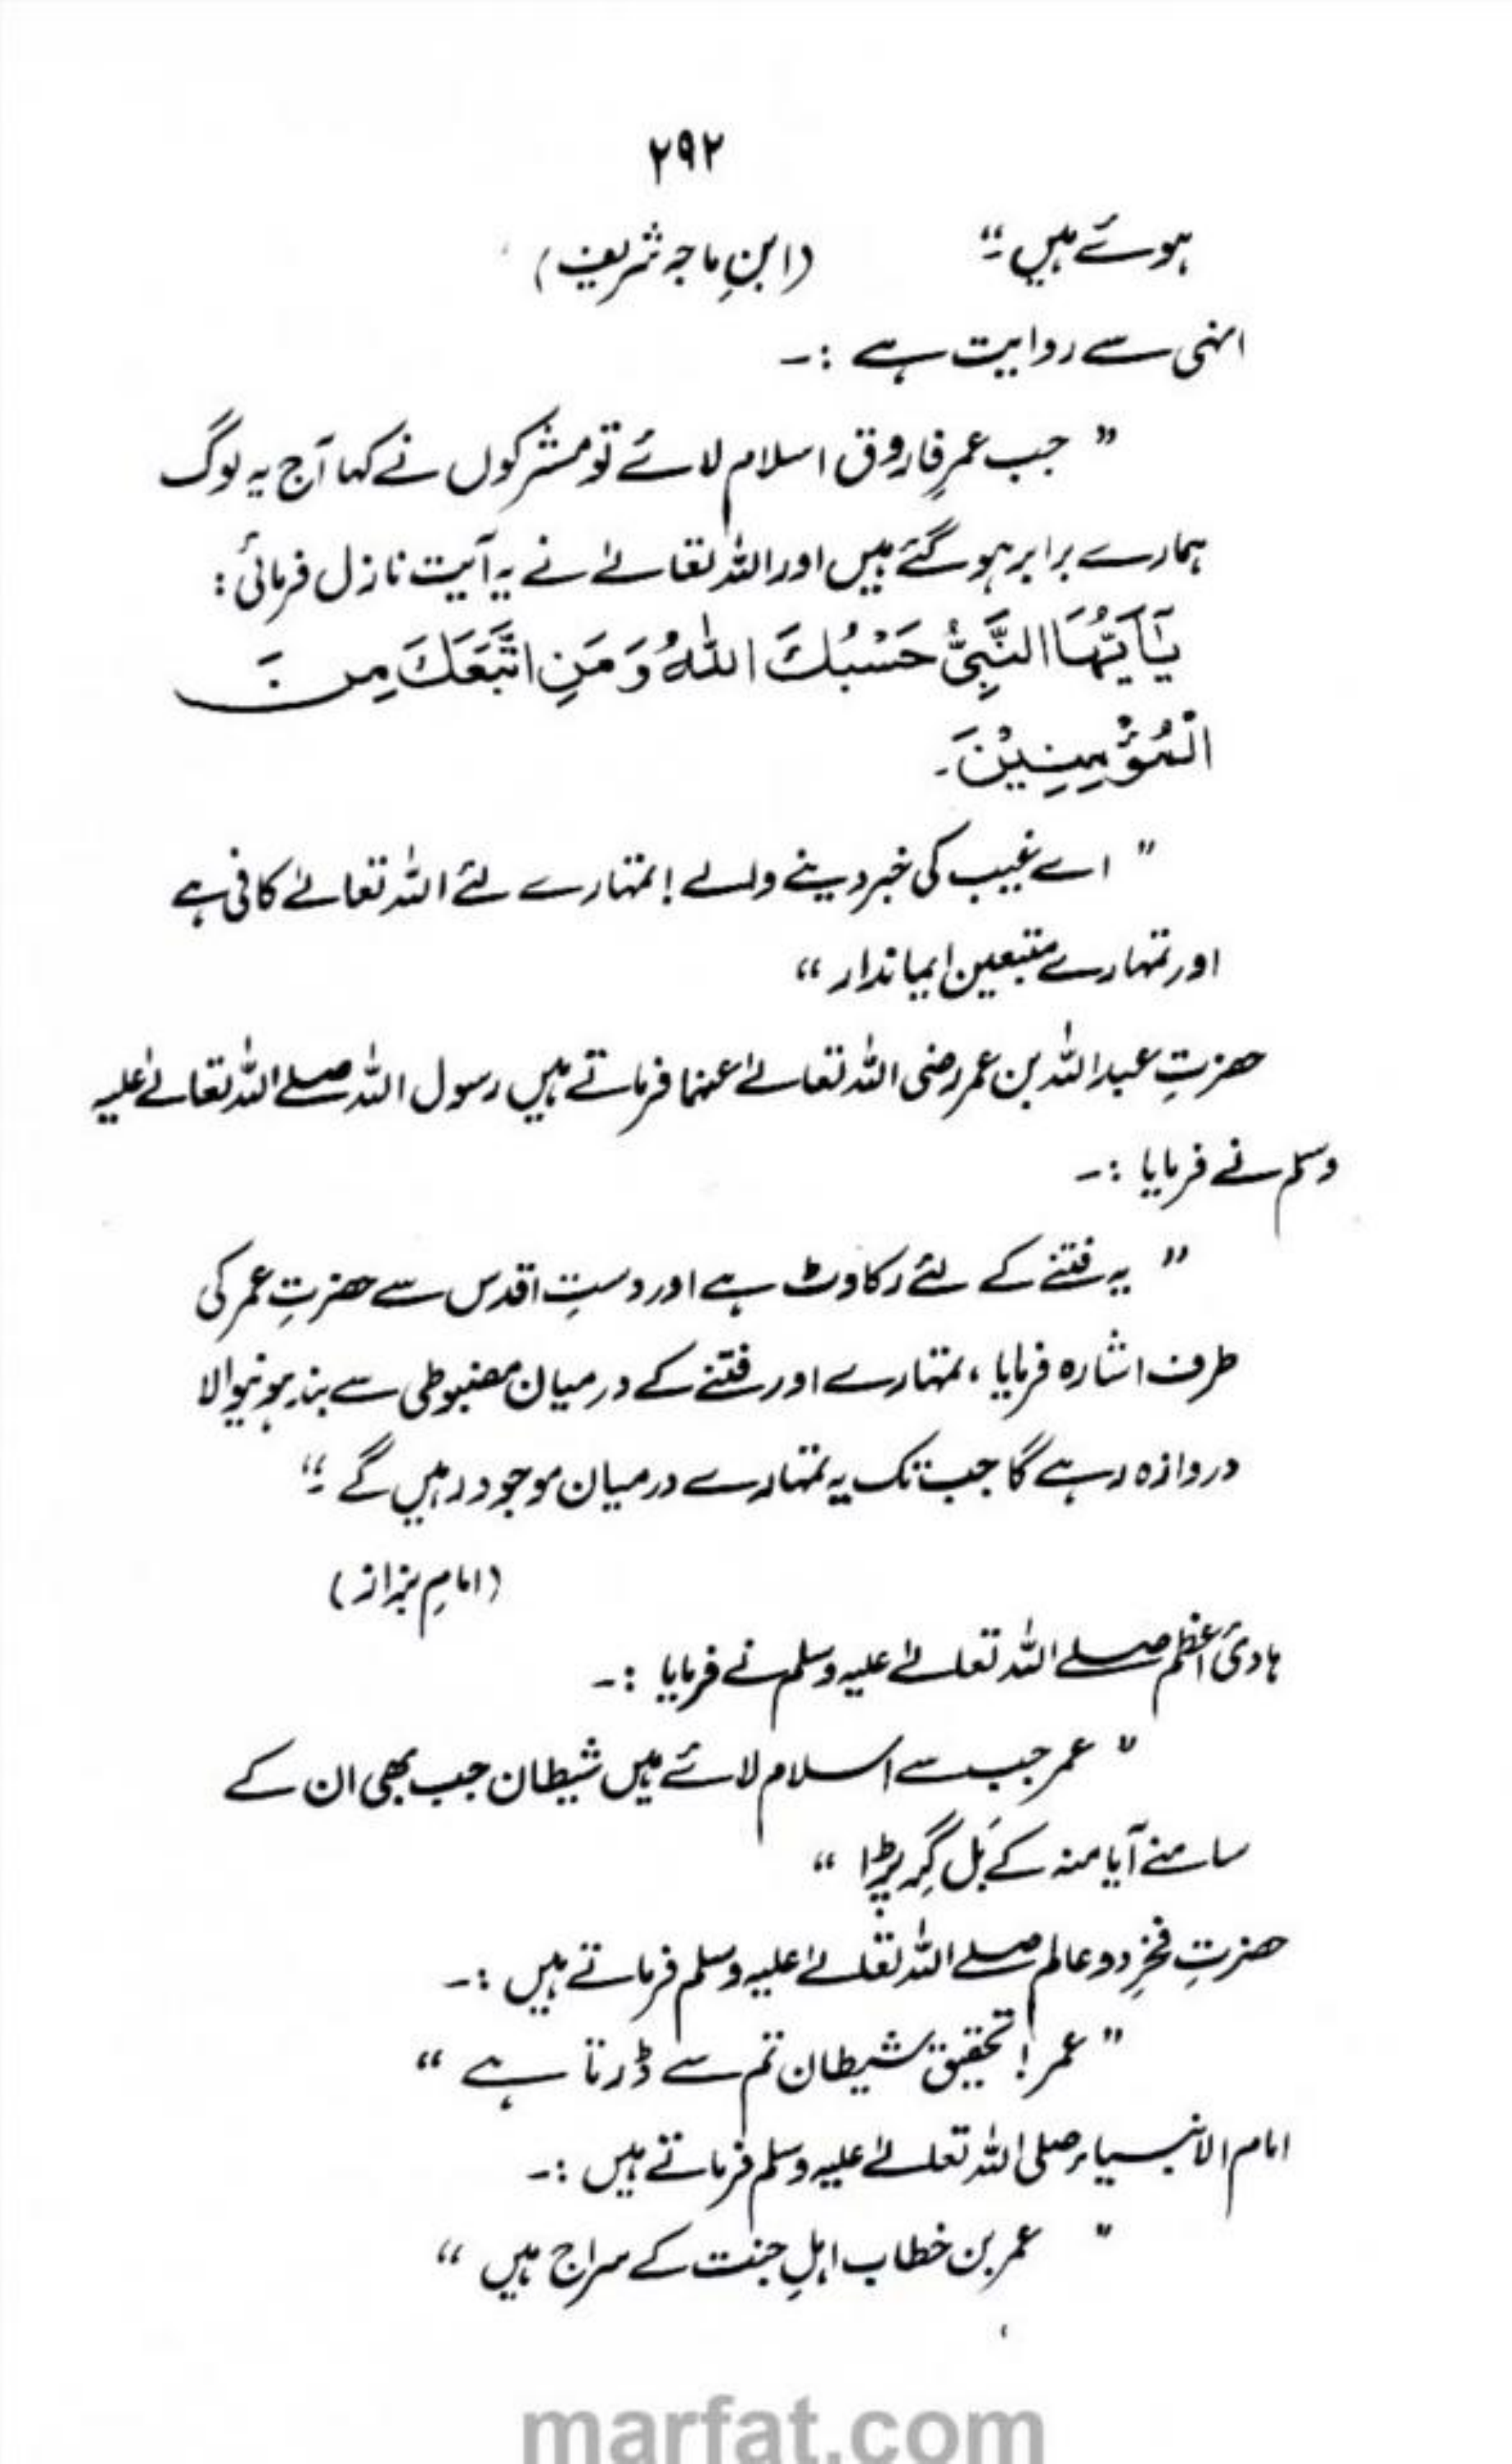 ۲۹۲
ہوئے ہیں ۔“ (ابنِ ماجہ شریف)
انہی سے روایت ہے :۔
” جب عمرِ فاروق اسلام لائے تو مشرکوں نے کہا آج یہ لوگ
ہمارے برابر ہو گئے ہیں اور اللہ تعالےٰ نے یہ آیت نازل فرمائی :
يٰٓاَيُّهَا النَّبِيُّ حَسْبُكَ اللّٰهُ وَمَنِ اتَّبَعَكَ مِنَ
الْمُؤْمِنِيْنَ۔
” اے غیب کی خبر دینے والے ! تمہارے لئے اللہ تعالےٰ کافی ہے
اور تمہارے متبعین ایماندار “
حضرتِ عبد اللہ بن عمر رضی اللہ تعالےٰ عنہما فرماتے ہیں رسول اللہ صلے اللہ تعالےٰ علیہ
وسلم نے فرمایا :۔
” یہ فتنے کے لئے رکاوٹ ہے اور دستِ اقدس سے حضرتِ عمر کی
طرف اشارہ فرمایا ، تمہارے اور فتنے کے درمیان مضبوطی سے بند ہونیوالا
دروازہ رہے گا جب تک یہ تمہارے درمیان موجود رہیں گے ۔“
(امامِ بزاز)
ہادیٔ اعظم صلے اللہ تعالےٰ علیہ وسلم نے فرمایا :۔
” عمر جب سے اسلام لائے ہیں شیطان جب بھی ان کے
سامنے آیا منہ کے بَل گِر پڑا “
حضرتِ فخرِ دو عالم صلے اللہ تعالےٰ علیہ وسلم فرماتے ہیں :۔
” عمر ! تحقیق شیطان تم سے ڈرتا ہے “
امام الانبیاء صلی اللہ تعالےٰ علیہ وسلم فرماتے ہیں :۔
” عمر بن خطاب اہلِ جنت کے سراج ہیں “
marfat.com